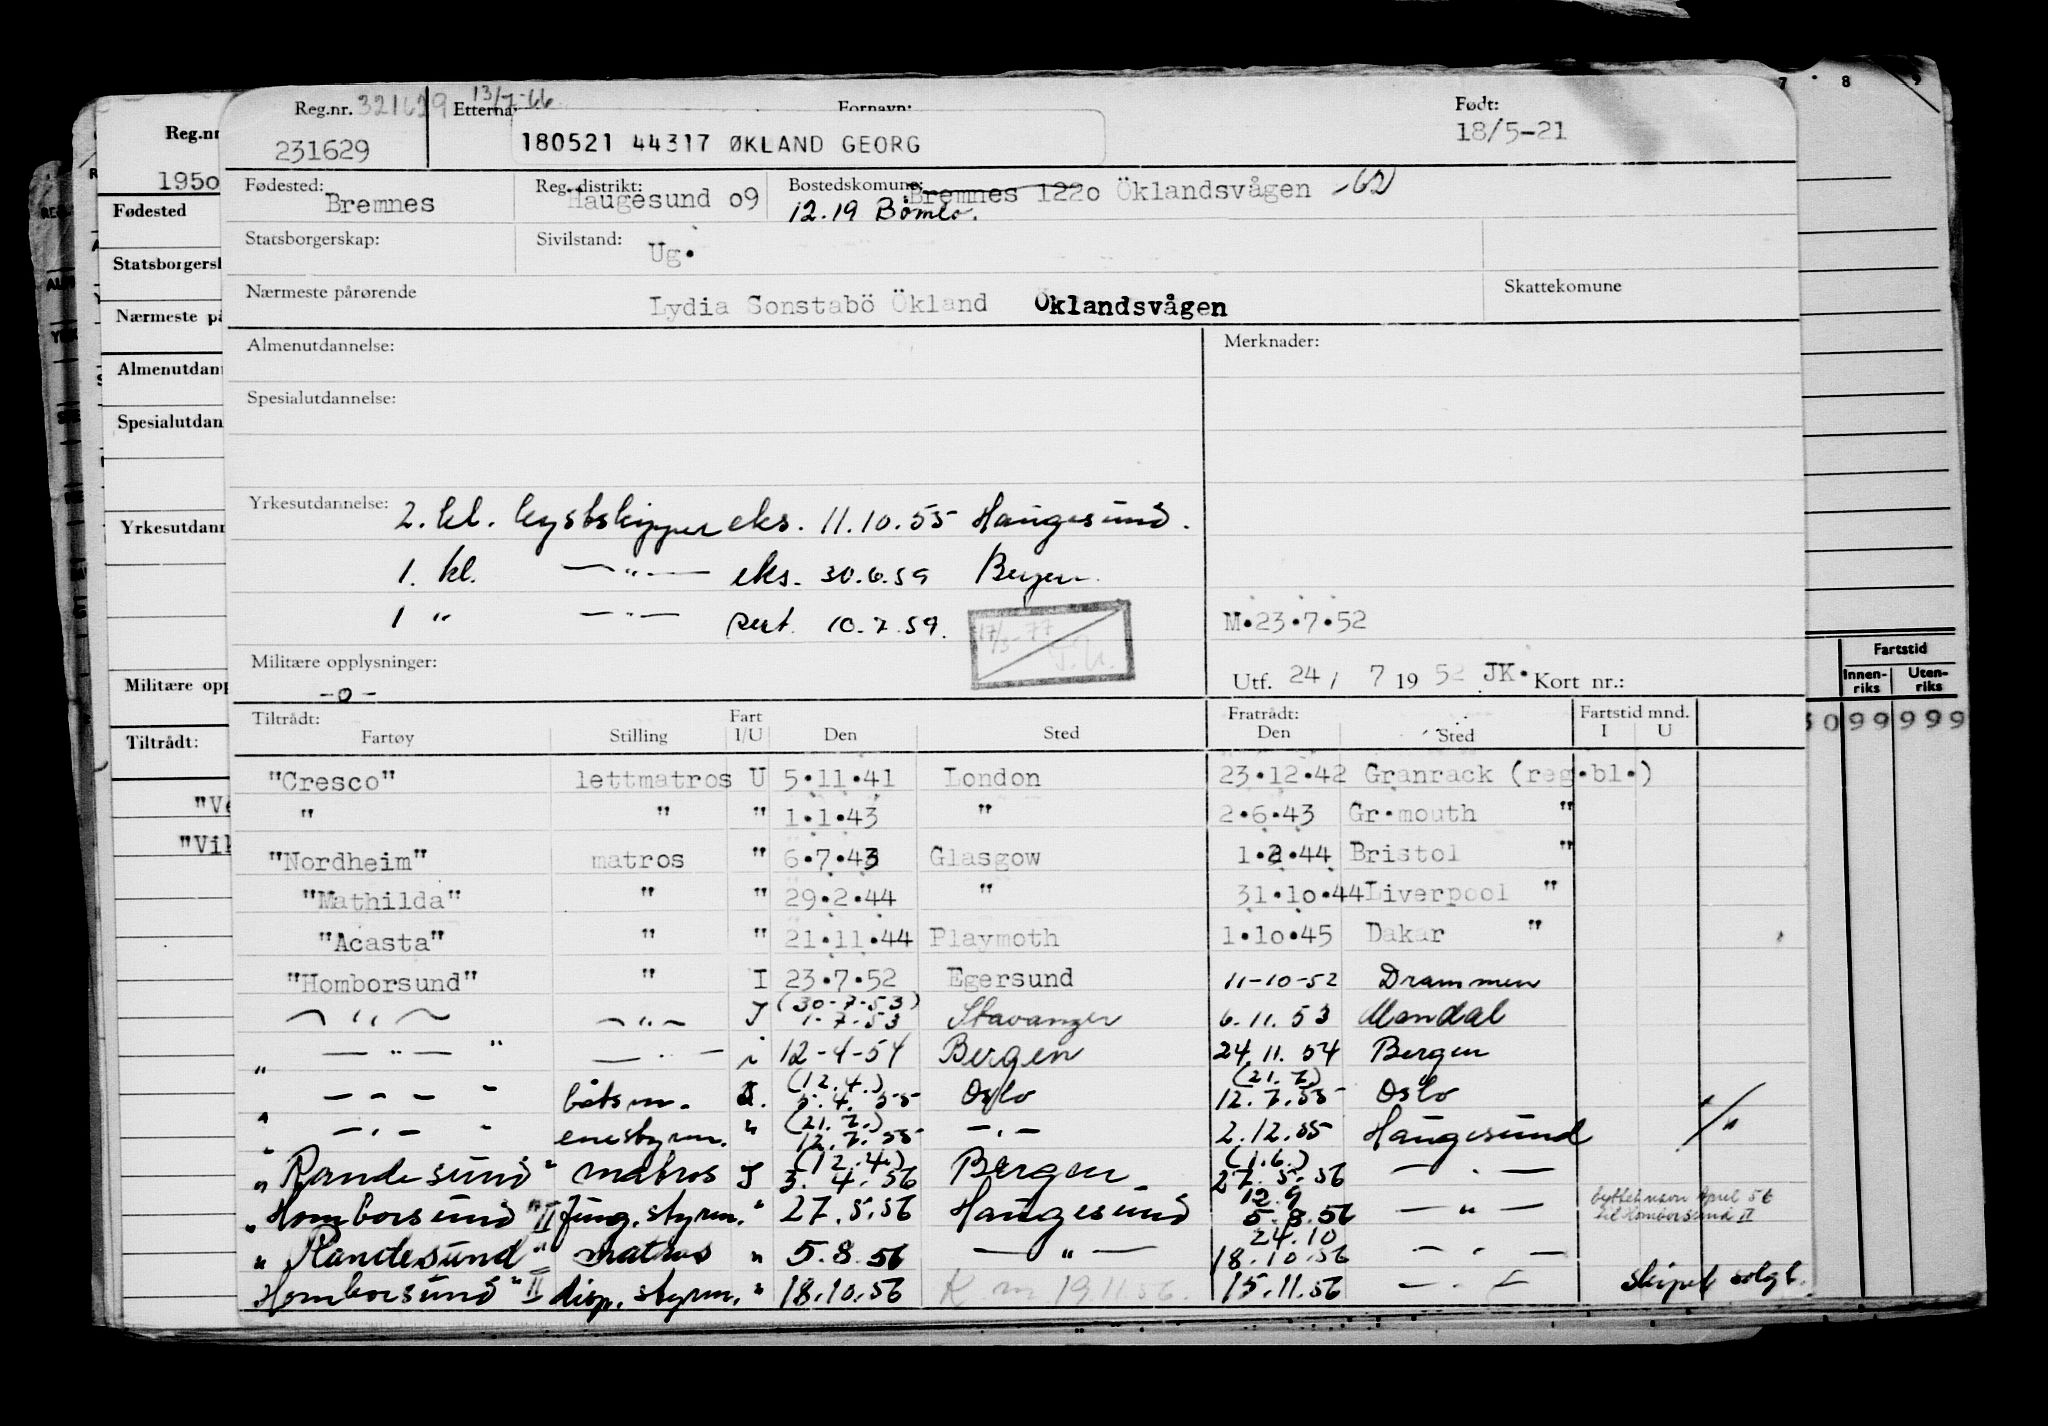 Reg.nr. 321629 Etterna 13/7-66 Fornavn: Født:
231629 180521 44317 ØKLAND GEORG 18/5-21
Fødested: Bremnes Reg. distrikt: Haugesund o9 Bostedskomune: Bremnes 122o Öklandsvågen -62
12.19 Bömlo.
Statsborgerskap: Sivilstand: Ug.
Nærmeste pårørende Lydia Sonstabö Ökland Öklandsvågen Skattekomune
Almenutdannelse: Merknader:
Spesialutdannelse:
Yrkesutdannelse: 2. kl. kystskipper eks. 11.10.55 Haugesund.
1. kl. —"— eks. 30.6.59 Bergen
1 " —"— sert. 10.7.59.
17/3-77
M.23.7.52
Militære opplysninger: -o-
Utf. 24/ 7 19 52 JK. Kort nr.:
Tiltrådt: Fart Fratrådt: Fartstid mnd.
Fartøy Stilling I/U Den Sted Den Sted I U
"Cresco" lettmatros U 5.11.41 London 23.12.42 Granrack (reg.bl.)
" " " 1.1.43 " 2.6.43 Gr.mouth "
"Nordheim" matros " 6.7.43 Glasgow 1.2.44 Bristol "
"Mathilda" " " 29.2.44 " 31.1o.44 Liverpool "
"Acasta" " " 21.11.44 Playmoth 1.1o.45 Dakar "
"Homborsund" " I 23.7.52 Egersund 11-10-52 Drammen
—"— —"— I (30-7-53) 1-7-53 Stavanger 6.11.53 Mandal
" —"— " —"— i 12-4-54 Bergen 24.11.54 Bergen
" — — — " båtsm. I. (12.4.) 5.4.55 Oslo (21.7.) 12.7.55 Oslo
" —"— " enestyrm. " (21.7.) 12.7.55 —"— 2.12.55 Haugesund "/"
"Randesund" matros I (12.4.) 3.4.56 Bergen (1.6.) 27.5.56 —"—
"Homborsund" II Jung.styrm. " 27.5.56 Haugesund 12.9 5.8.56 —"— byttet navn April 56 til Homborsund II
"Randesund" matros " 5.8.56 —"— 24.10 18.10.56 —"—
Homborsund" II disp. styrm. " 18.10.56 K m 19.11.56. 15.11.56 —"— Skipet solgt.
Reg.nr
195o
Fødested
Statsborgersk
Nærmeste på
Almenutdan
Spesialutdan
Yrkesutdann
Militære opp
Tiltrådt:
"Ve
"Vik
7 8 9
Fartstid
Innen-riks Uten-riks
30 99 999